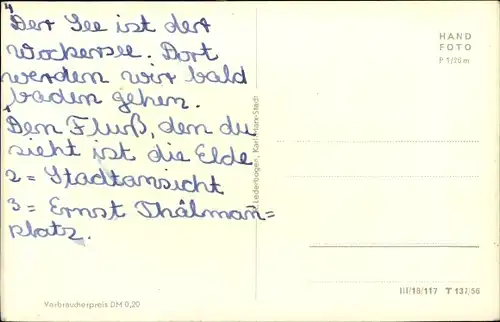 4
Der See ist der
Wockersee. Dort
werden wir bald
baden gehen.
Dem Fluß, den du
sieht ist die Elde
2 = Stadtansicht
3 = Ernst Thälmañ=
platz.
Verbraucherpreis DM 0,20
Lederbogen, Karl-Marx-Stadt
HAND
FOTO
P 1/20 m
III/18/117 T 137/56